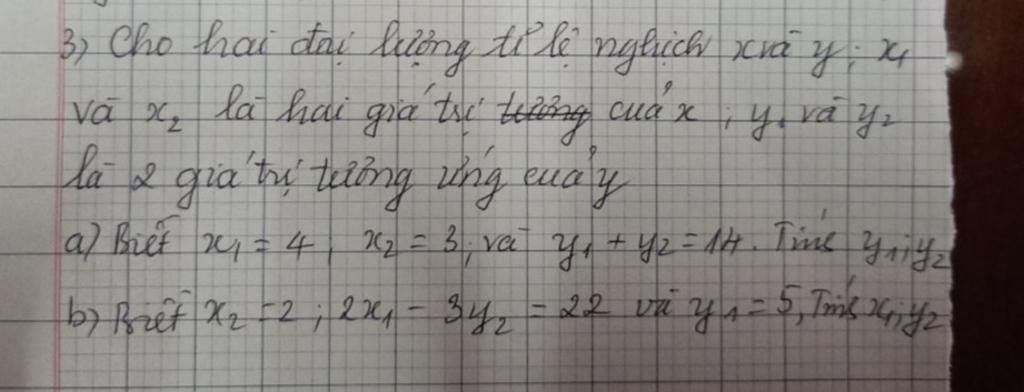 3) Cho hai đại lượng tỉ lệ nghịch x và y; x₁
và x₂ là hai giá trị tương của x, y₁ và y₂
là 2 giá trị tương ứng của y
a) Biết x₁ = 4, x₂ = 3, và y₁ + y₂ = 14. Tính y₁; y₂
b) Biết x₂ = 2; 2x₁ - 3y₂ = 22 và y₁ = 5, Tính x₁; y₂